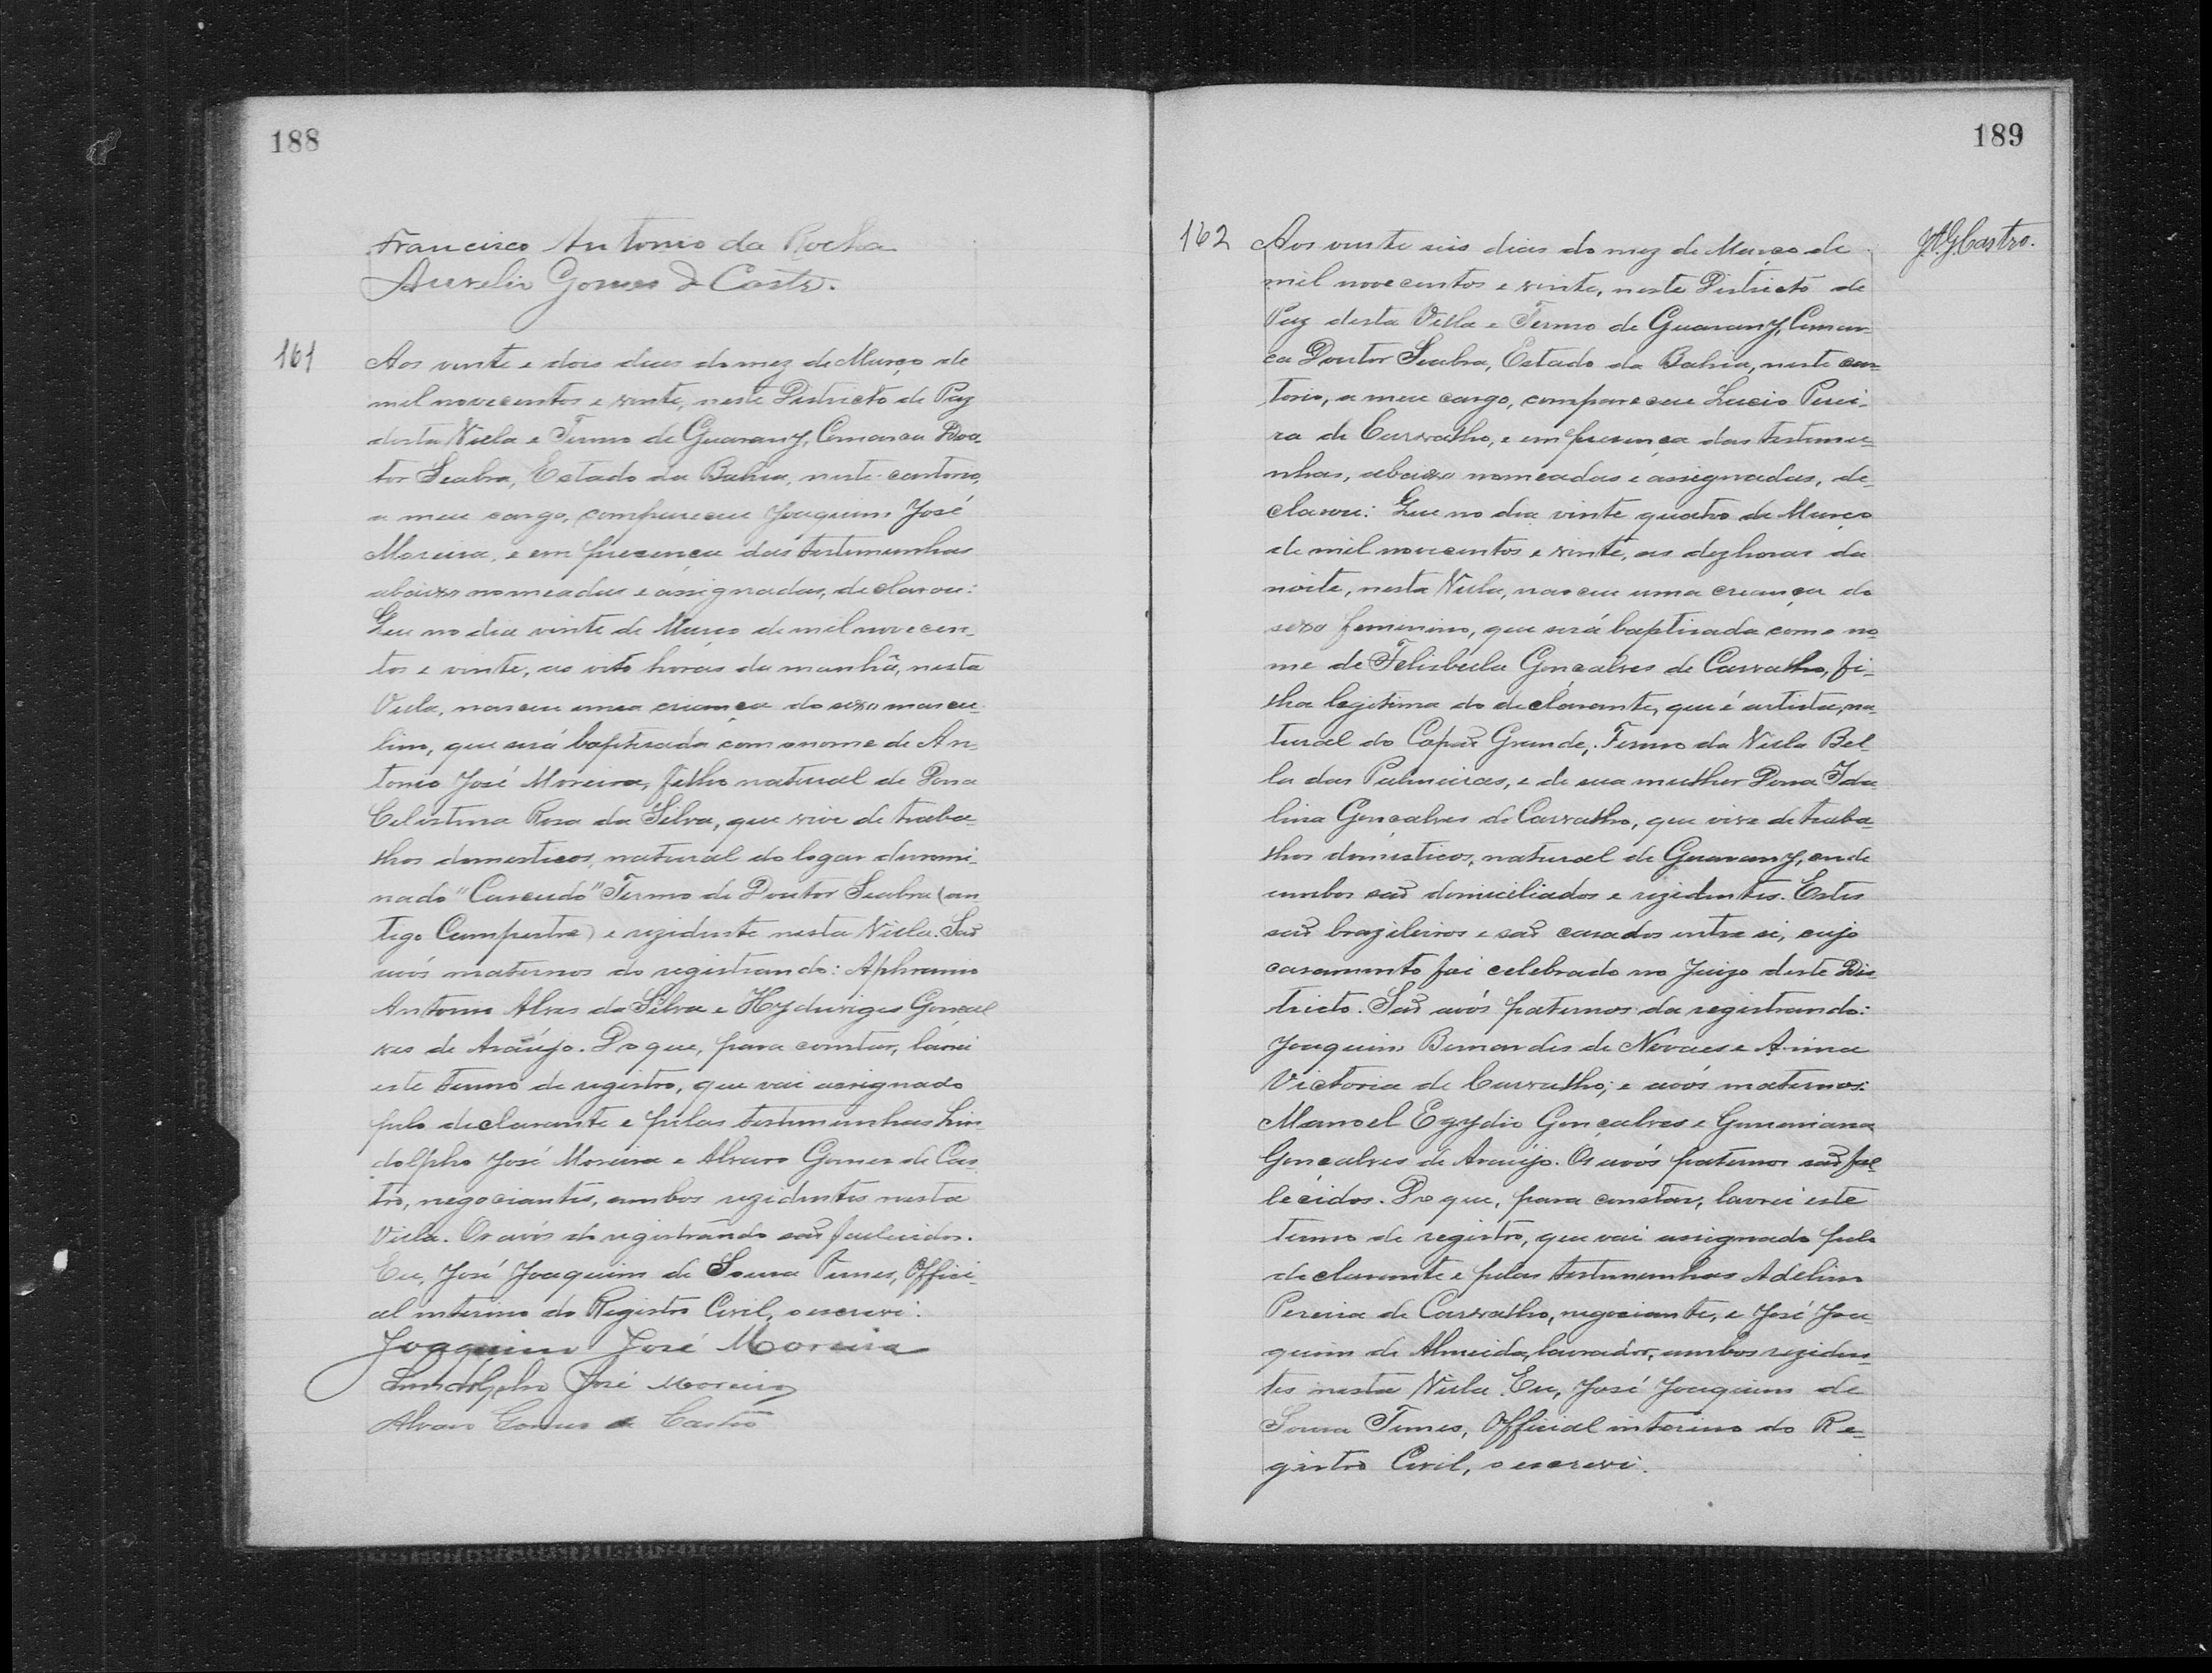 188
Francisco Antonio da Rocha
Aurelio Gomes de Castro.
161
Aos vinte e dois dias do mez de Março de
mil novecentos e vinte, neste Districto de Paz
desta Villa e Termo de Guarany, Comarca Dou-
tor Seabra, Estado da Bahia, neste cartorio,
a meu cargo, compareceu Joaquim José
Moreira, e em presença das testemunhas
abaixo nomeadas e assignadas, declarou:
Que no dia vinte de Março de mil novecen-
tos e vinte, as oito horas da manhã, nesta
Villa, nasceu uma criança do sexo mascu-
lino, que será baptisada com o nome de An-
tonio José Moreira, filho natural de Dona
Celestina Rosa da Silva, que vive de traba-
lhos domesticos, natural do logar denomi-
nado "Cascudo" Termo de Doutor Seabra (an-
tigo Campestre) e rezidente nesta Villa. Saõ
avós maternos do registrando: Aphranio
Antonio Alves da Silva e Hyduviges Gonçal
ves de Araújo. Do que, para constar, lavrei
este termo de registro, que vai assignado
pelo declarante e pelas testemunhas Lin-
dolpho José Moreira e Alvaro Gomes de Cas-
tro, negociantes, ambos rezidentes nesta
Villa. Os avós do registrando saõ fallecidos.
Eu, José Joaquim de Souza Tunes, Offici-
al interino do Registro Civil, o escrevi.
Joaquim José Moreira
Lindolpho José Moreira
Alvaro Gomes de Castro
189
162
J.A.G. Castro.
Aos vinte seis dias do mez de Março de
mil novecentos e vinte, neste Districto de
Paz desta Villa e Termo de Guarany, Comar-
ca Doutor Seabra, Estado da Bahia, neste car-
torio, a meu cargo, compareceu Lucio Perei-
ra de Carvalho, e em presença das testemu-
nhas, abaixo nomeadas e assignadas, de-
clarou: Que no dia vinte quatro de Março
de mil novecentos e vinte, as dez horas da
noite, nesta Villa, nasceu uma creança do
sexo feminino, que será baptisada com o no-
me de Felisbella Gonçalves de Carvalho, fi-
lha legitima do declarante, que é artista, na-
tural do Capaõ Grande, Termo da Villa Bel
la das Palmeiras, e de sua mulher Dona Ida
lina Gonçalves de Carvalho, que vive de traba-
lhos domesticos, natural de Guarany, onde
ambos saõ domiciliados e rezidentes. Estes
saõ brazileiros e saõ casados entre si, cujo
casamento foi celebrado no Juizo deste Dis-
tricto. Saõ avós paternos da registrando:
Joaquim Bernardes de Novaes e Anna
Victoria de Carvalho; e avós maternos:
Manoel Egydio Gonçalves e
Gonçalves de Araujo. Os avós paternos saõ fal-
lecidos. Do que, para constar, lavrei este
termo de registro, que vai assignado pelo
declarante e pelas testemunhas Adelino
Pereira de Carvalho, negociante, e José Joa-
quim de Almeida, lavrador, ambos reziden-
tes nesta Villa. Eu, José Joaquim de
Souza Tunes, Official interino do Re-
gistro Civil, o escrevi.